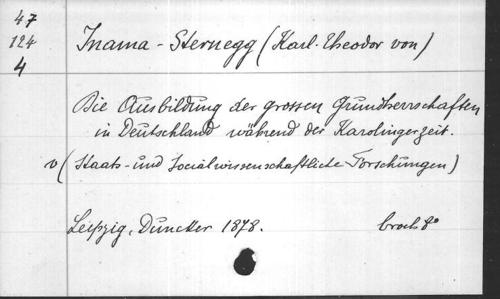 47
124
4
Inama-Sternegg (Karl-Theodor von)
Die Ausbildung der grossen Grundherrschaften
in Deutschland während der Karolingerzeit.
v (Staats- und Socialwissenschaftliche Forschungen)
Leipzig, Duncker 1878. broch 8°